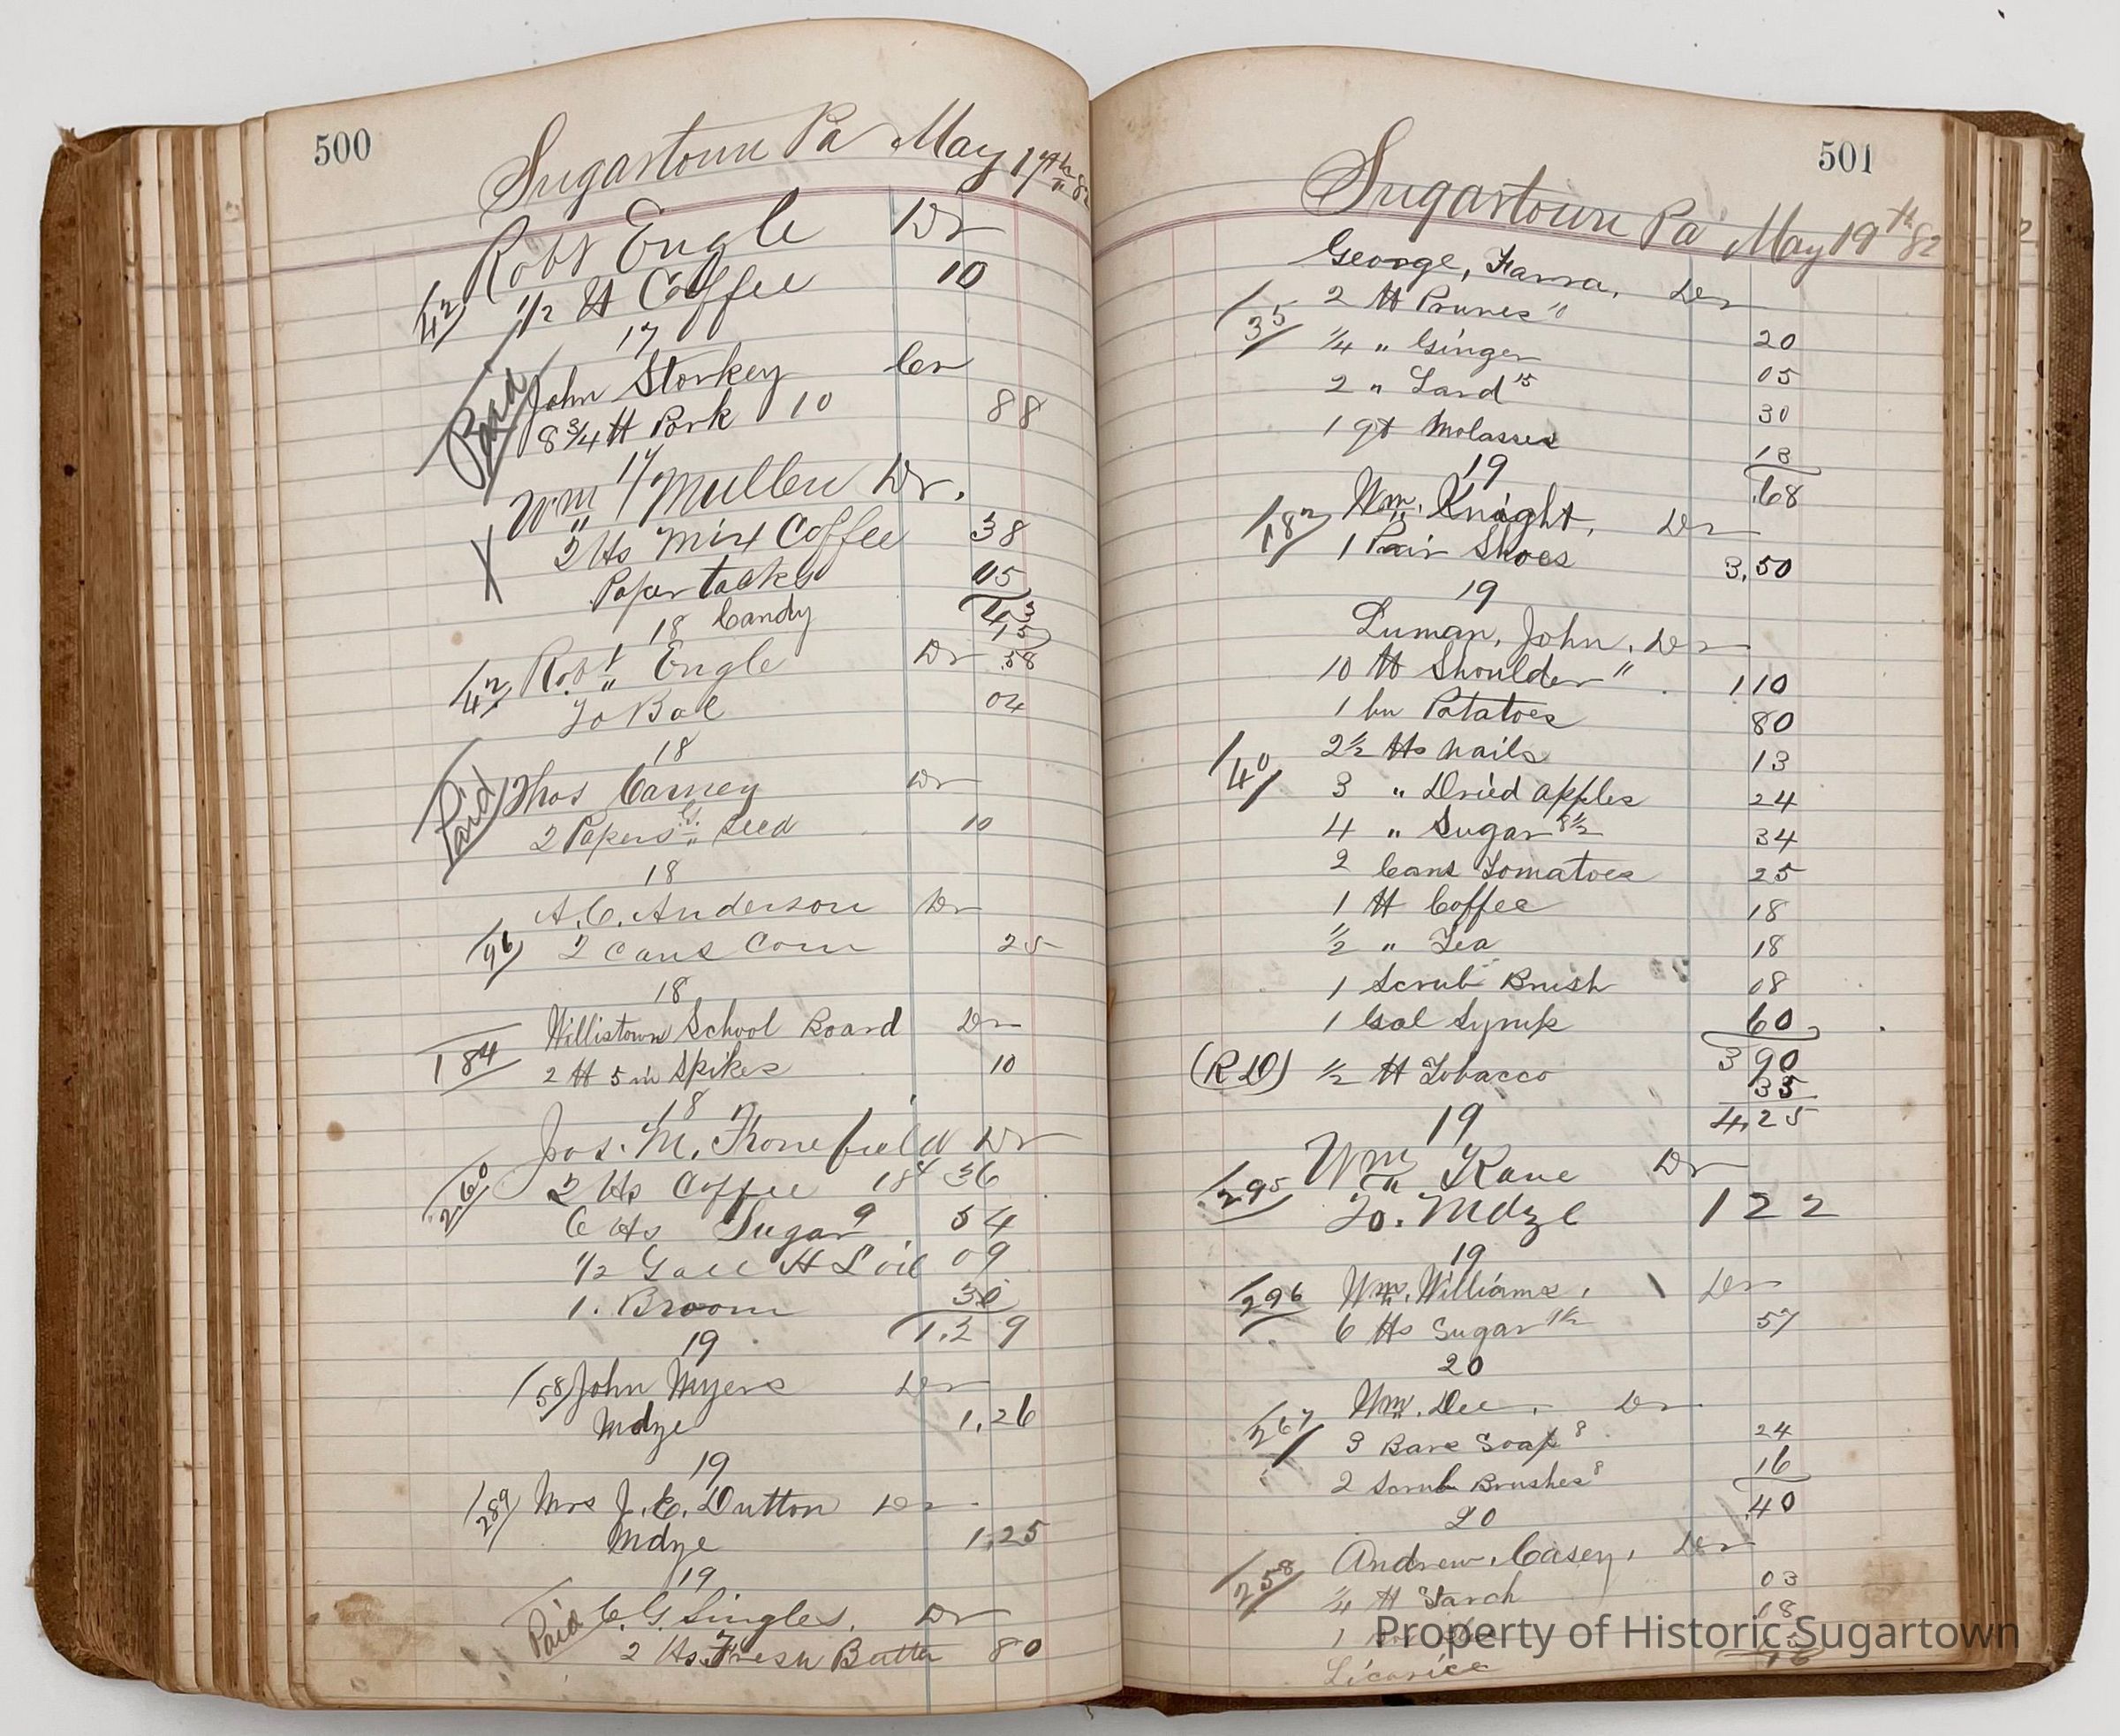 500
Sugartown Pa May 17th 82
Robt Engle Dr
42 1/2 lb Coffee 10
17
Paid John Storkey Cr
8 3/4 lb Pork 10 88
17
X Wm Mullen Dr.
2 lbs Mixt Coffee 38
Paper tacks 05
43
18 Candy 15
42 Robt Engle Dr .58
To Bal 04
18
Paid Thos Carney Dr
2 Papers Seed 10
18
A. C. Anderson Dr
96 2 Cans Corn 25
18
Willistown School Board Dr
184 2 lb 5 in Spikes 10
18
Jos. M. Thonefield Dr
260 2 lbs Coffee 18 36
6 lbs Sugar 9 54
1/2 Gall H L oil 09
1. Broom 30
1.29
19
58 John Myers Dr
Mdze 1.26
19
289 Mrs J. E. Dutton Dr
Mdze 1.25
19
Paid C. G. Singles. Dr
2 lbs Fresh Butter 80
501
Sugartown Pa May 19th 82
George, Farra, Dr
35 2 lb Prunes 10 20
1/4 " Ginger 05
2 " Lard 15 30
1 qt Molasses 13
.68
19
182 Wm. Knight, Dr
1 Pair Shoes 3.50
19
Luman, John, Dr
10 lb Shoulder 11 1 10
1 bu Potatoes 80
40 2 1/2 lbs Nails 13
3 " Dried apples 24
4 " Sugar 8 1/2 34
2 Cans Tomatoes 25
1 lb Coffee 18
1/2 " Tea 18
1 Scrub Brush 08
1 Gal Syrup 60
3 90
(R D) 1/2 lb Tobacco 35
4.25
19
295 Wm Kane Dr
To. Mdze 1 22
19
296 Wm. Williams, Dr
6 lbs Sugar 57
20
267 Wm. Dee, Dr
3 Bars Soap 8 24
2 Scrub Brushes 8 16
.40
20
Andrew, Casey, Dr
258 1/4 lb Starch 03
1 08
Licorice
Property of Historic Sugartown